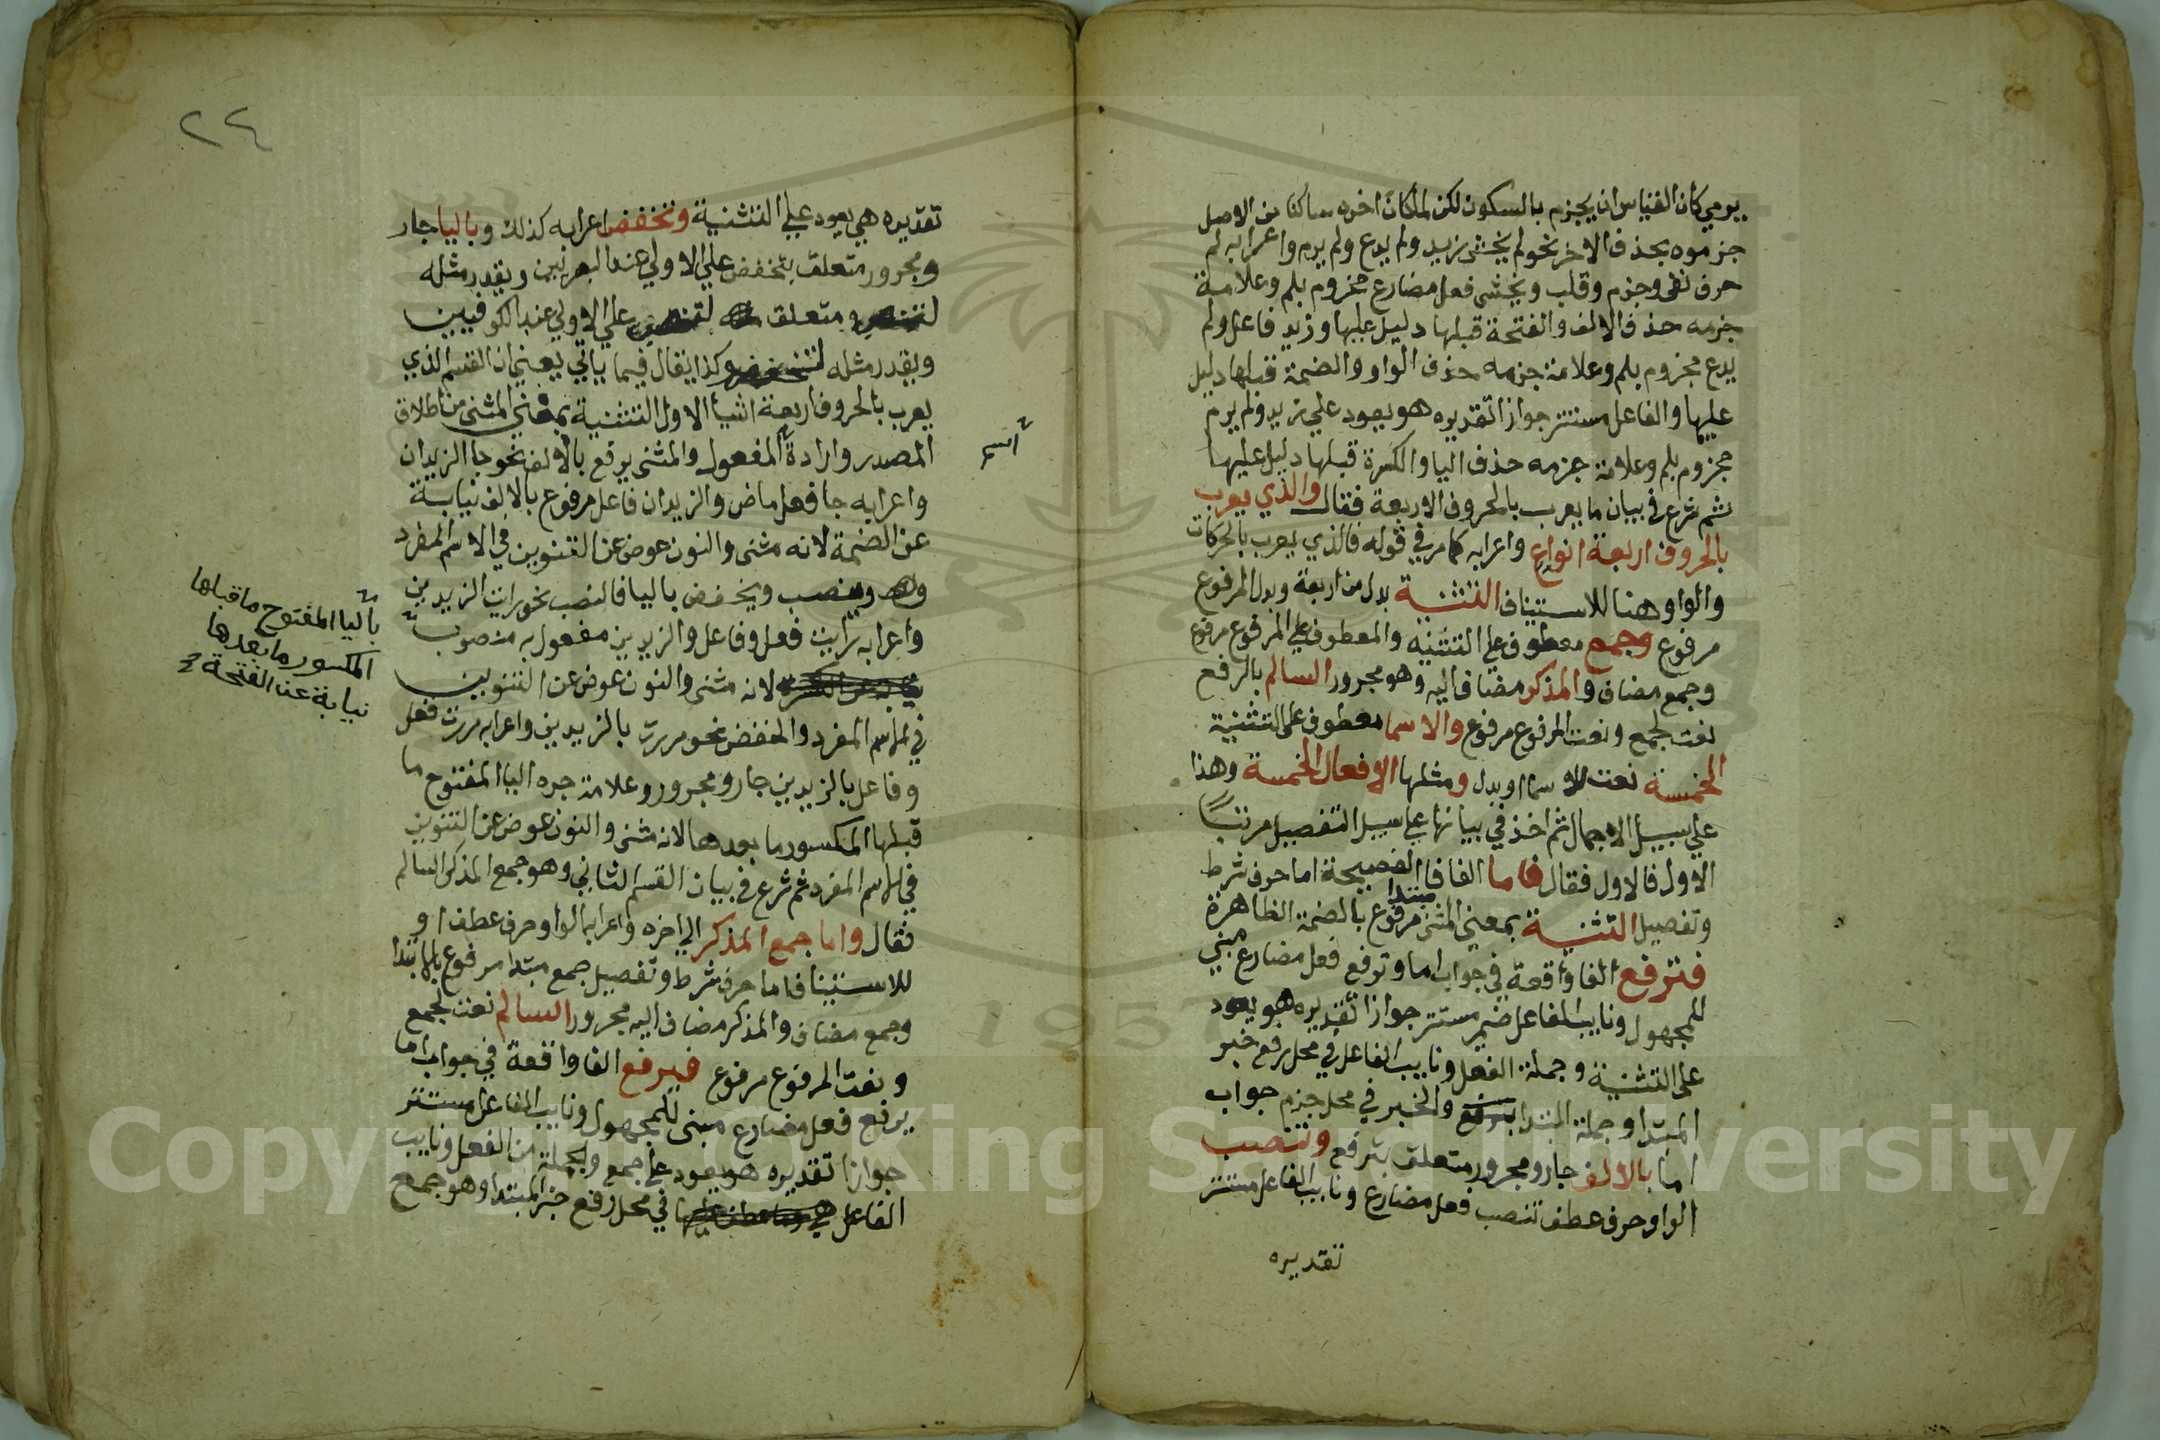 يرمي كان القياس ان يجزم بالسكون لكن لما كان اخره ساكنا من الاصل
جزموه بحذف الاخر نحو لم يخش زيد ولم يدع ولم يرم واعرابه لم
حرف نفي وجزم وقلب ويخشى فعل مضارع مجزوم بلم وعلامة
جزمه حذف الالف والفتحة قبلها دليل عليها وزيد فاعل ولم
يدع مجزوم بلم وعلامة جزمه حذف الواو والضمة قبلها دليل
عليها والفاعل مستتر جوازا تقديره هو يعود علي زيد ولم يرم
مجزوم بلم وعلامة جزمه حذف اليا والكسرة قبلها دليل عليها
ثم شرع في بيان ما يعرب بالحروف الاربعة فقال والذي يعرب
بالحروف اربعة انواع واعرابه كما مر في قوله فالذي يعرب بالحركات
والواو هنا للاستيناف التثنية بدل من اربعة وبدل المرفوع
مرفوع وجمع معطوف علي التثنيه والمعطوف علي المرفوع مرفوع
وجمع مضاف والمذكر مضاف اليه وهو مجرور السالم بالرفع
نعت لجمع ونعت المرفوع مرفوع والاسما معطوف على التثنية
الخمسة نعت للاسما او بدل ومثلها الافعال الخمسة وهذا
علي سبيل الاجمال ثم اخذ في بيانها علي سبيل التفصيل مرتبا
الاول فالاول فقال فاما الفا فا الفصيحة اما حرف شرط
وتفصيل التثنية بمعنى المثنى مبتدا مرفوع بالضمة الظاهرة
فترفع الفا واقعة في جواب اما وترفع فعل مضارع مبني
للمجهول ونايب الفاعل ضمير مستتر جوازا تقديره هو يعود
على التثنية وجملة الفعل ونايب الفاعل في محل رفع خبر
المبتدا وجملة المبتدا والخبر في محل جزم جواب
اما بالالف جار ومجرور متعلق بترفع وتنصب
الواو حرف عطف تنصب فعل مضارع ونايب الفاعل مستتر
تقديره
٢٤
تقديره هي يعود علي التثنية وتخفض اعرابه كذلك وباليا جار
ومجرور متعلق بتخفض علي الاولي عند البصريين ويقدر مثله
لتنصب ومتعلق لتنصب علي الاولي عند الكوفيين
ويقدر مثله لتخفض وكذا يقال فيما ياتي يعني ان القسم الذي
يعرب بالحروف اربعة اشيا الاول التثنية بمعني المثنى من اطلاق
المصدر وارادة المفعول والمثنى يرفع بالالف نحو جا الزيدان
اسم
واعرابه جا فعل ماض والزيدان فاعل مرفوع بالالف نيابة
عن الضمة لانه مثنى والنون عوض عن التنوين في الاسم المفرد
وينصب ويخفض باليا فالنصب نحو رايت الزيدين
واعرابه رايت فعل وفاعل والزيدين مفعول به منصوب
باليا المفتوح ما قبلها
المكسور ما بعدها
نيابة عن الفتحة
لانه مثنى والنون عوض عن التنوين
في الاسم المفرد والخفض نحو مررت بالزيدين واعرابه مررت فعل
وفاعل بالزيدين جار ومجرور وعلامة جره اليا المفتوح ما
قبلها المكسور ما بعدها لانه مثنى والنون عوض عن التنوين
في الاسم المفرد ثم شرع في بيان القسم الثاني وهو جمع المذكر السالم
فقال واما جمع المذكر الي اخره واعرابه الواو حرف عطف او
للاستيناف اما حرف شرط وتفصيل جمع مبتدا مرفوع بالابتدا
وجمع مضاف والمذكر مضاف اليه مجرور السالم نعت لجمع
ونعت المرفوع مرفوع فيرفع الفا واقعة في جواب اما
يرفع فعل مضارع مبني للمجهول ونايب الفاعل مستتر
جوازا تقديره هو يعود علي جمع والجملة من الفعل ونايب
الفاعل في محل رفع خبر المبتدا وهو جمع
Copyright © King Saud University
1957